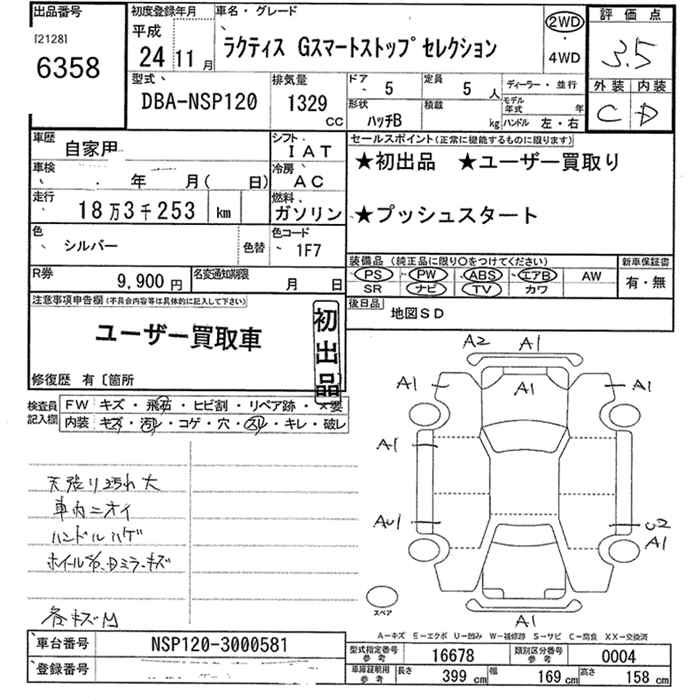 出品番号
[2128]
6358
初度登録年月
平成
24 11月
車名・グレード
ラクティス Gスマートストップ セレクション
2WD
・
4WD
評価点
3.5
外装 内装
C D
型式
DBA-NSP120
排気量
1329
CC
ドア
5
定員
5 人
形状
ハッチB
積載
kg
ディーラー・並行
モデル年式 年
ハンドル 左・右
車歴
自家用
シフト
IAT
車検
年 月( 日)
冷房
AC
走行
18万3千253 km
燃料
ガソリン
色
シルバー
色替
色コード
1F7
R券
9,900円
名変通知期限
月 日
セールスポイント(正常に機能するものに限ります)
★初出品 ★ユーザー買取り
★プッシュスタート
装備品 (純正品に限り○をつけてください)
PS PW ABS エアB AW
SR ナビ TV カワ
新車保証書
有・無
後日品
地図SD
注意事項申告欄(不具合内容等は具体的に記入して下さい)
ユーザー買取車
初出品
修復歴 有〔箇所
検査員記入欄
FW キズ・飛石・ヒビ割・リペア跡・×要
内装 キズ・汚れ・コゲ・穴・スレ・キレ・破レ
天張り汚れ大
車内ニオイ
ハンドルハゲ
ホイール Dミラーキズ
各キズM
A2 A1
A1 A1 A1
A1
AU1
U2
A1
A1
スペア
A-キズ E-エクボ U-凹み W-補修跡 S-サビ C-腐食 XX-交換済
車台番号
NSP120-3000581
登録番号
型式指定番号
参考
16678
類別区分番号
参考
0004
車庫証明用
参考
長さ
399 cm
幅
169 cm
高さ
158 cm